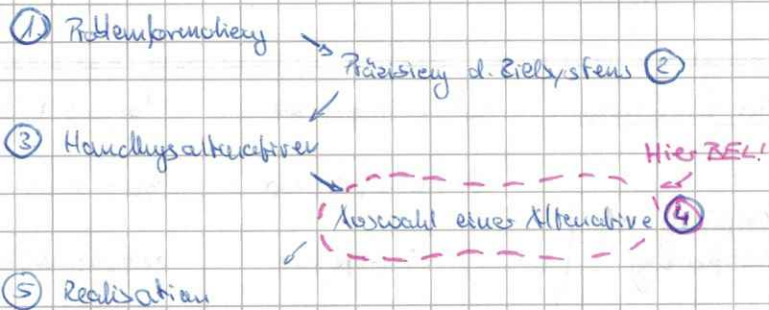 ① Problemformulierung
Präzisierung d. Zielsystems ②
③ Handlungsalternativen
Hier BEL!
Auswahl einer Alternative ④
⑤ Realisation